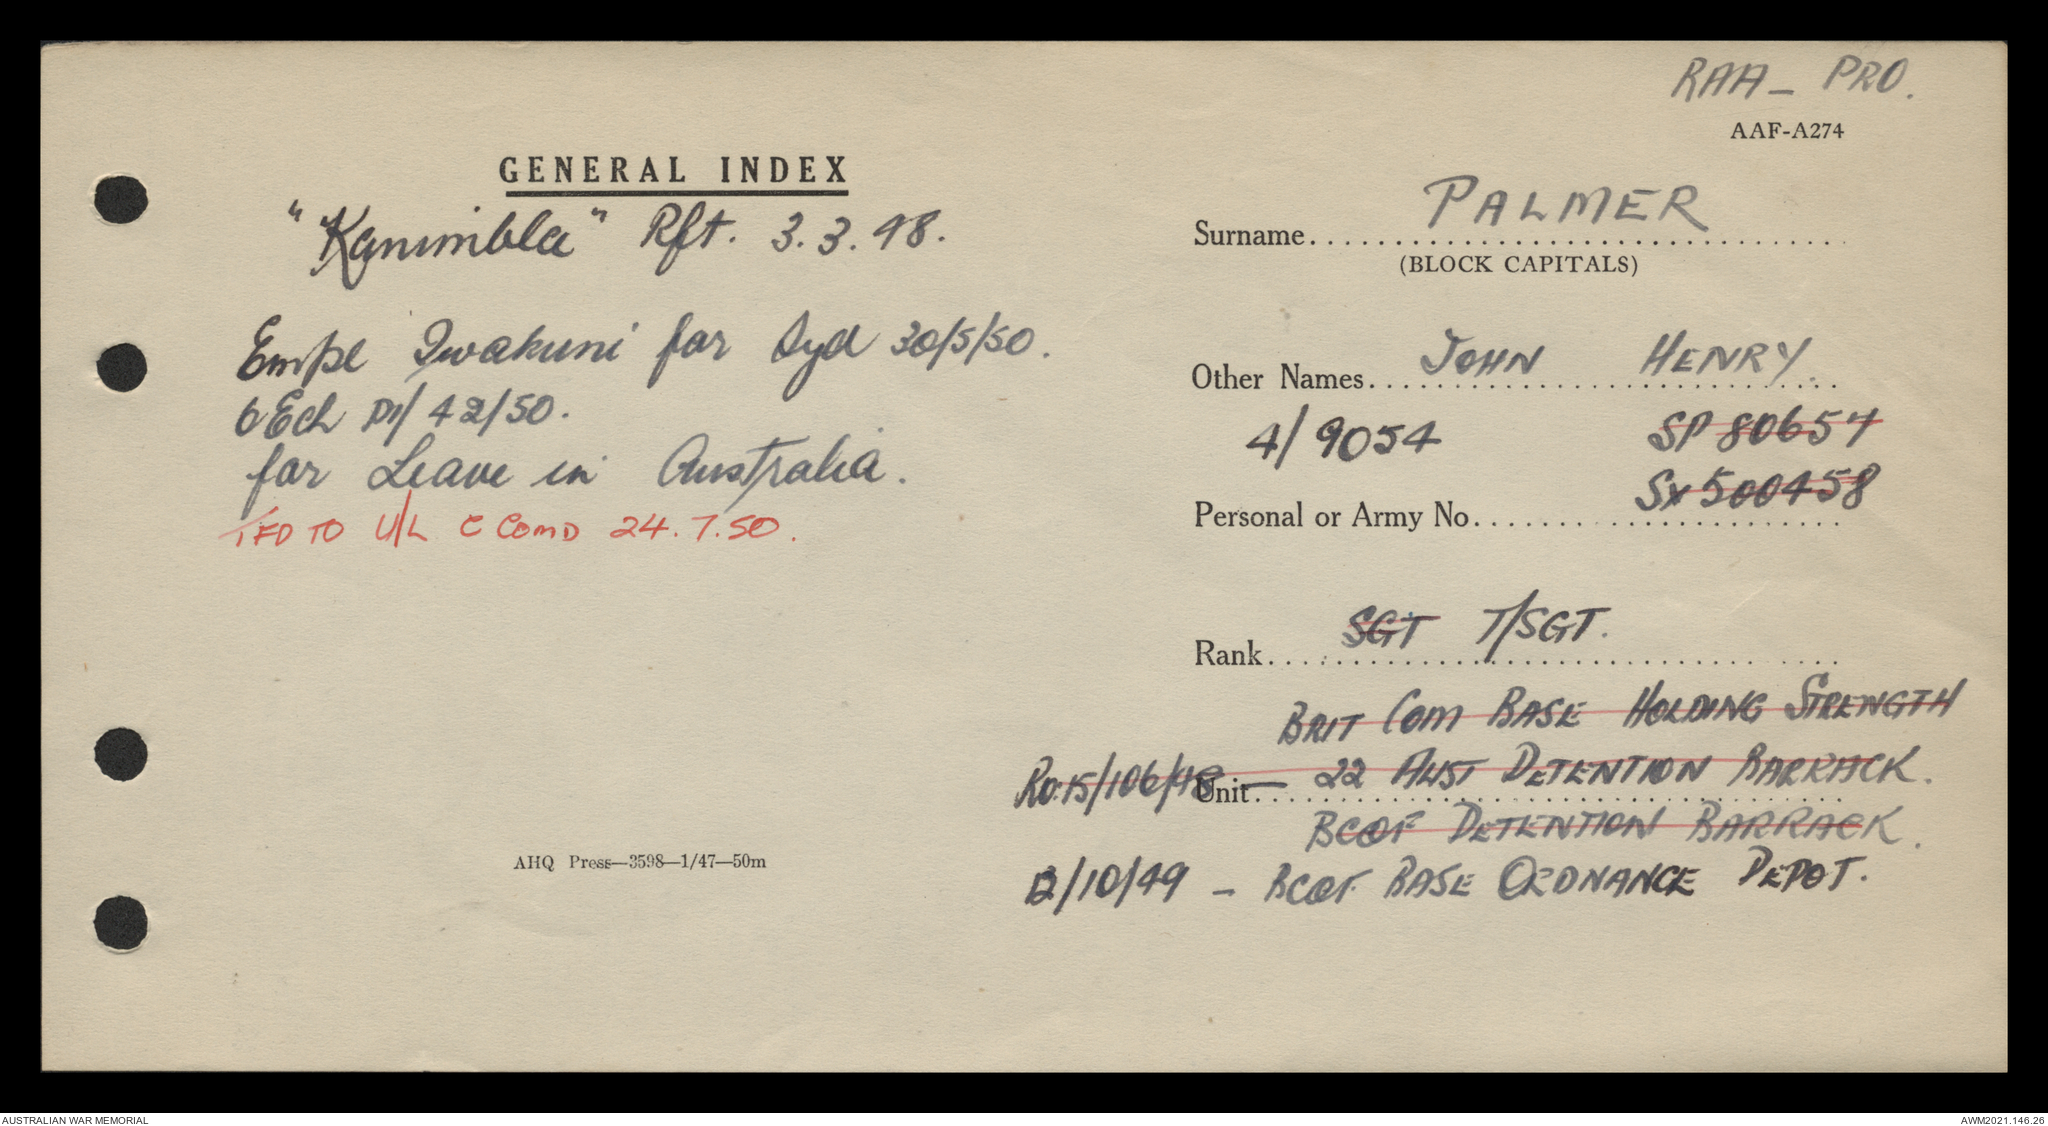 RAA - PRO.
AAF-A274
GENERAL INDEX
"Kanimbla" Rft. 3.3.48.
Empl Iwakuni for Syd 30/5/50.
6 Ech DI/42/50.
for Leave in Australia.
TFD TO U/L C COMD 24.7.50.
AHQ Press—3598—1/47—50m
Surname PALMER
(BLOCK CAPITALS)
Other Names JOHN HENRY
4/9054 SP 80654
SX500458
Personal or Army No.
Rank SGT T/SGT.
BRIT COM BASE HOLDING STRENGTH
RO.15/106/48 Unit — 22 AUST DETENTION BARRACK.
BCOF DETENTION BARRACK.
12/10/49 - BCOF BASE ORDNANCE DEPOT.
AUSTRALIAN WAR MEMORIAL
AWM2021.146.26